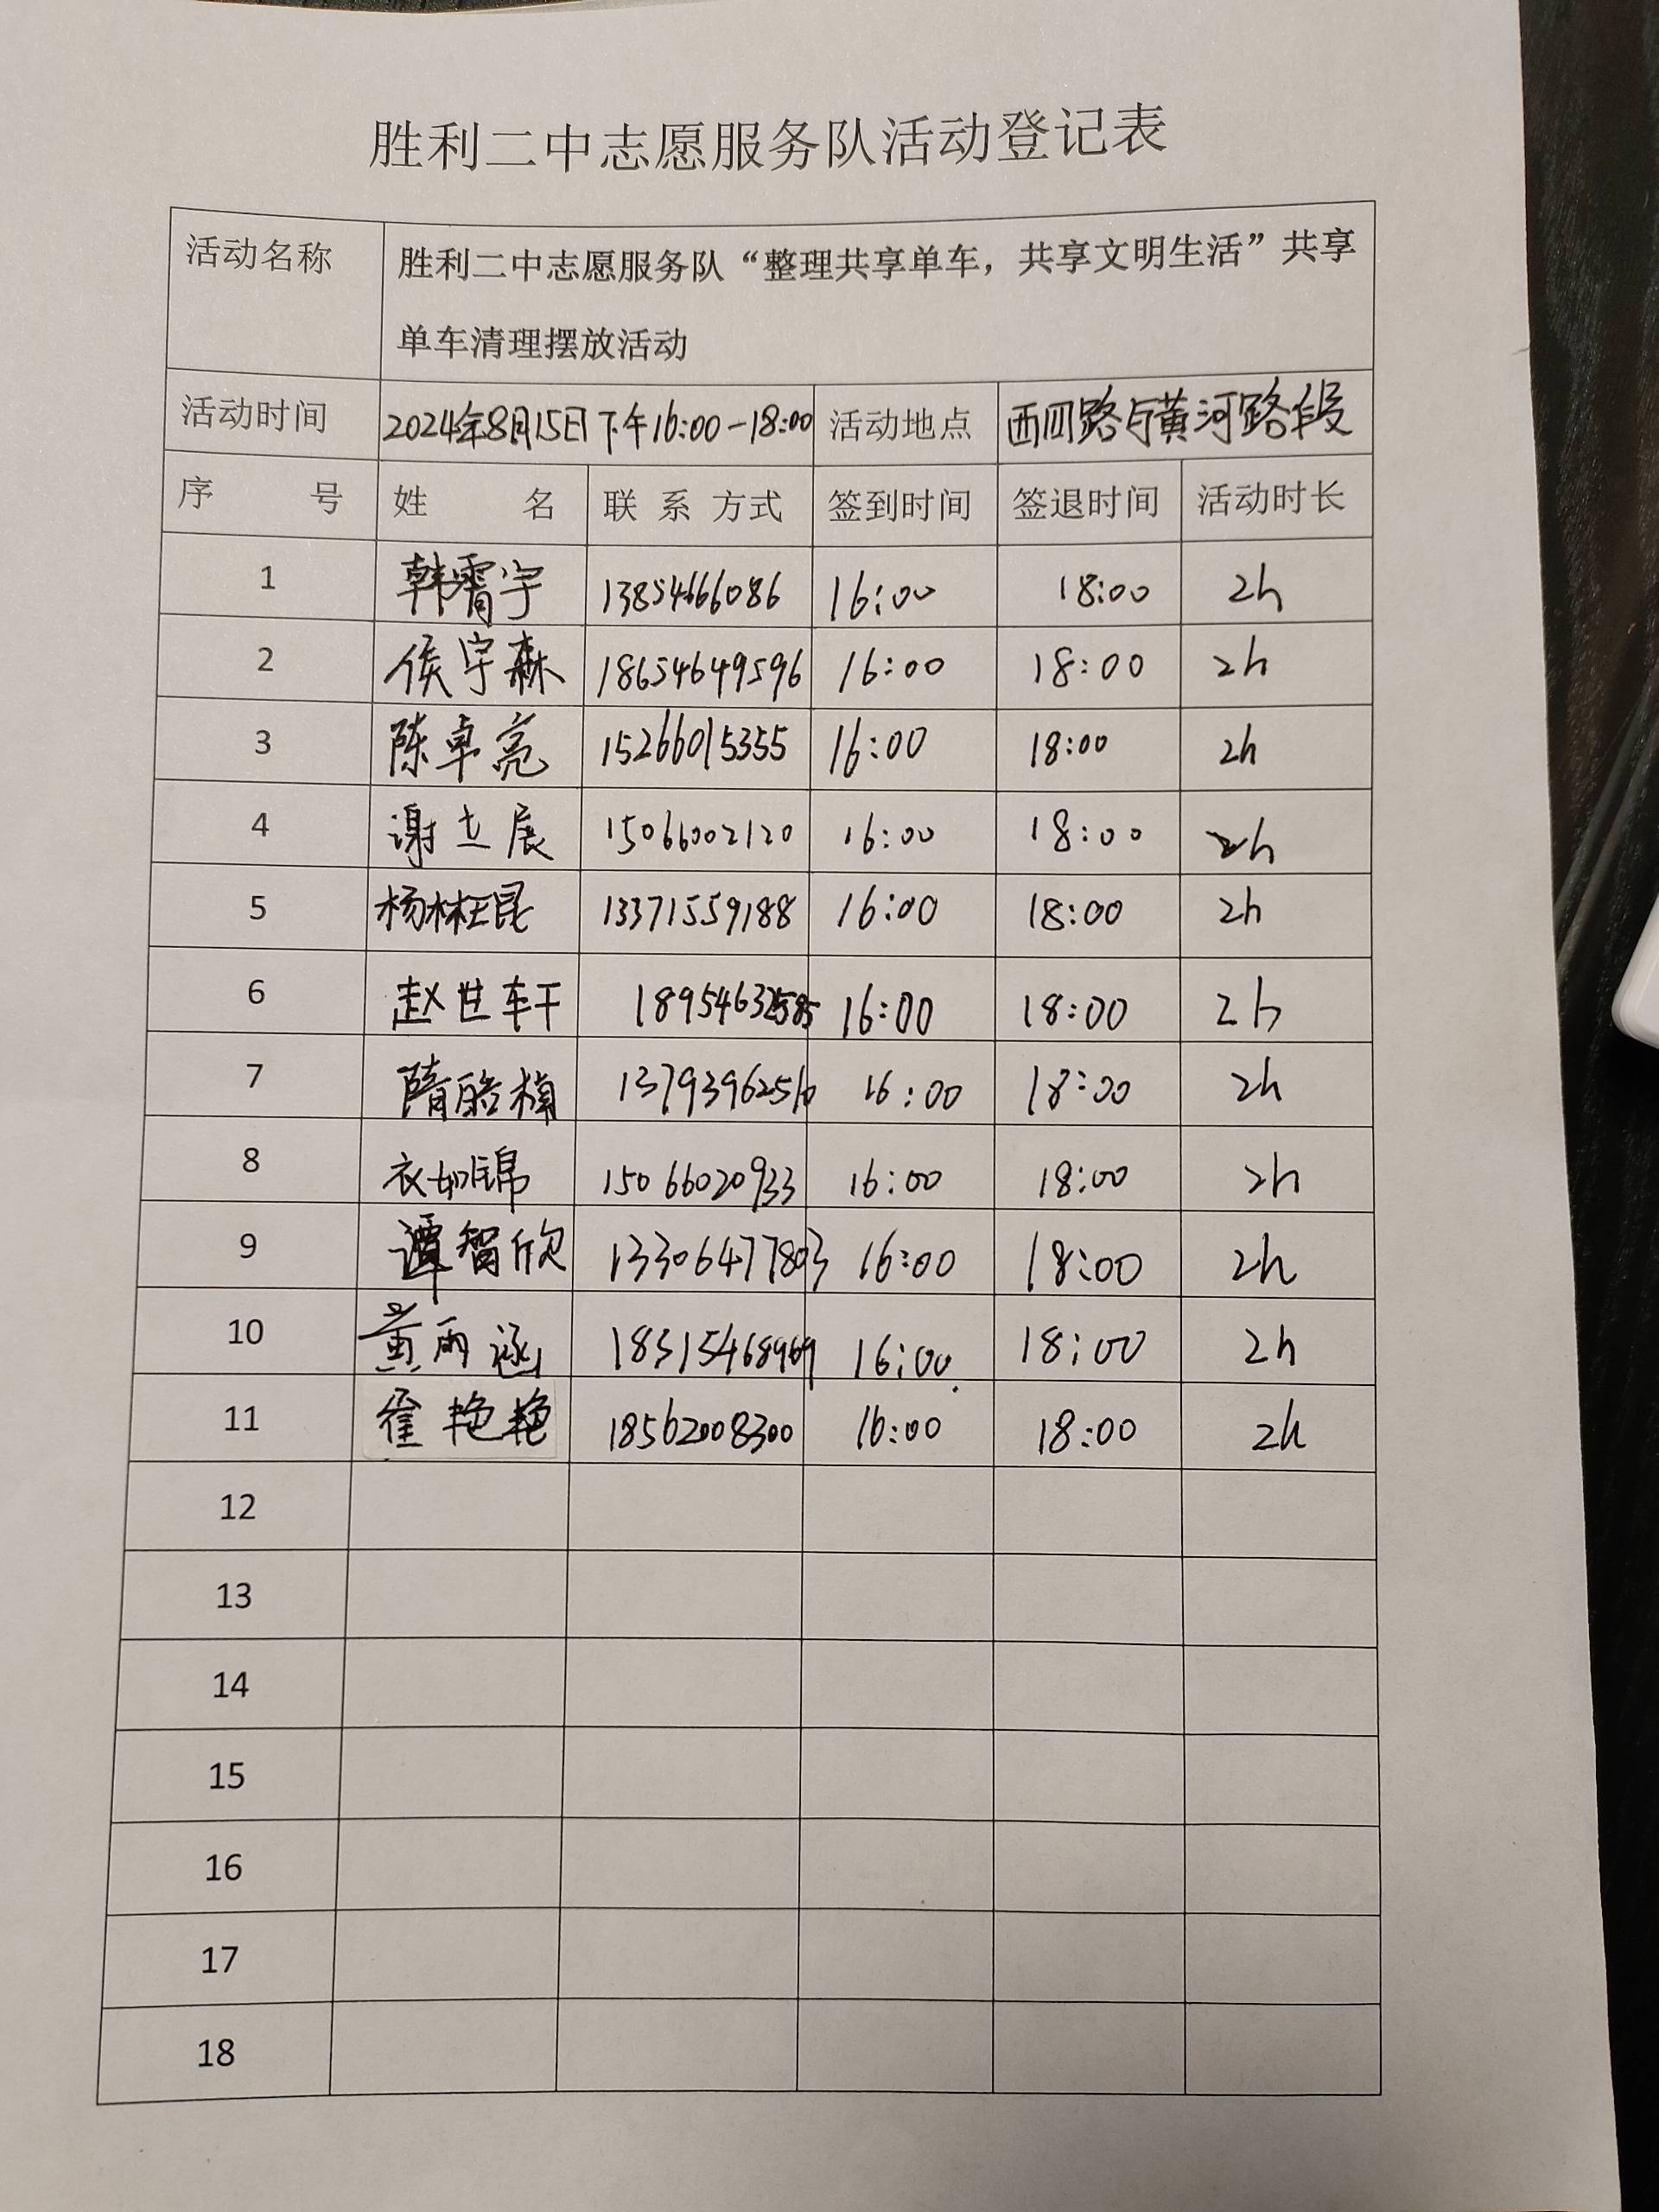 胜利二中志愿服务队活动登记表
活动名称 胜利二中志愿服务队“整理共享单车，共享文明生活”共享
单车清理摆放活动
活动时间 2024年8月15日下午16:00-18:00 活动地点 西四路与黄河路段
序 号 姓 名 联系方式 签到时间 签退时间 活动时长
1 韩霄宇 13854666086 16:00 18:00 2h
2 侯宇森 18654649596 16:00 18:00 2h
3 陈卓亮 15266015355 16:00 18:00 2h
4 谢立展 15066002120 16:00 18:00 2h
5 杨林枉昆 13371559188 16:00 18:00 2h
6 赵世轩 16:00 18:00 2h
7 隋皓楨 13793962510 16:00 18:00 2h
8 衣如锦 15066020933 16:00 18:00 2h
9 谭智欣 13306477803 16:00 18:00 2h
10 黄雨涵 18315468969 16:00 18:00 2h
11 霍艳艳 18562008300 16:00 18:00 2h
12
13
14
15
16
17
18